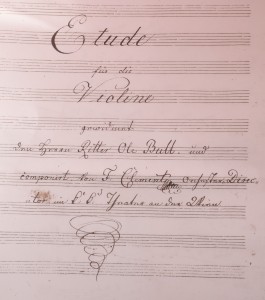 Etude
für die
Violine
gewidmet
dem Herrn Ritter Ole Bull und
componirt von F. Clement Orchester Direc-
ator im k. k. Theater an der Wien.